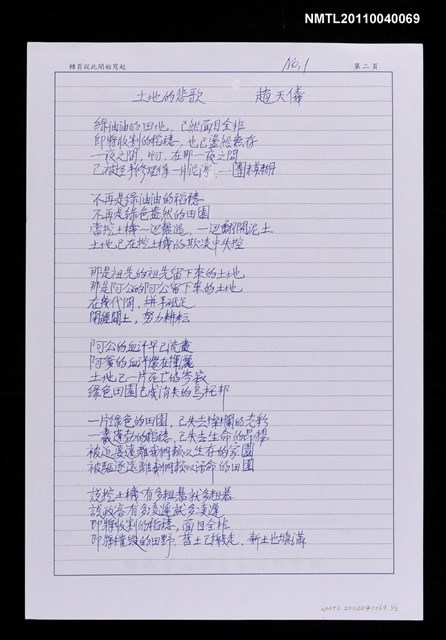 NMTL20110040069
轉頁從此開始寫起
No.1
第二頁
土地的悲歌 趙天儀
綠油油的田地，已然面目全非
即將收割的稻穗，也已蕩然無存
一夜之間，啊，在那一夜之間
一團模糊
不再是綠油油的稻穗
不再是綠色盎然的田園
當挖土機一邊掘過，一邊翻開泥土
土地已在挖土機的欺凌中失控
那是祖先的祖先留下來的土地
那是阿公的阿公留下來的土地
在幾代間，胼手胝足
開疆闢土，努力耕耘
阿公的血汗早已流盡
阿爹的血汗還在揮灑
土地已一片死亡的岑寂
綠色田園已成消失的烏托邦
一片綠色的田園，已失去燦爛的色彩
一叢蓬勃的稻穗，已失去生命的昂揚
被迫要遠離我們賴以生存的家園
被驅逐遠離我們賴以活命的田園
該挖土機有多粗暴就多粗暴
該政客有多凌遲就多凌遲
即將收割的稻穗，面目全非
即將摧毀的田野，舊土已搬走，新土也填滿
NMTL20110040069